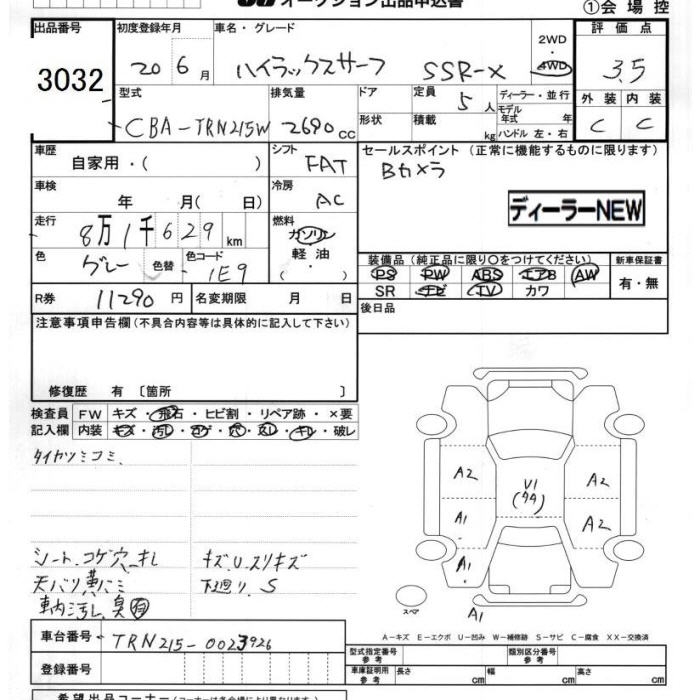 オークション出品申込書
①会場控
出品番号 初度登録年月 車名・グレード 2WD・4WD 評価点
3032 20 6月 ハイラックスサーフ SSR-X 3.5
型式 排気量 ドア 定員 5人 ディーラー・並行 外装 内装
CBA-TRN215W 2690cc 形状 積載 kg モデル年式 年 ハンドル 左・右 C C
車歴 シフト セールスポイント (正常に機能するものに限ります)
自家用・( ) FAT Bカメラ
車検 冷房
年 月( 日) AC ディーラーNEW
走行 燃料
8万1千629km ガソリン
色 色替 色コード 軽油 装備品(純正品に限り○をつけてください) 新車保証書
グレー 1E9 ・( ) PS PW ABS エアB AW 有・無
R券 11290円 名変期限 月 日 SR ナビ TV カワ
注意事項申告欄(不具合内容等は具体的に記入して下さい) 後日品
修復歴 有 〔箇所 〕
検査員 FW キズ・飛石・ヒビ割・リペア跡・×要
記入欄 内装 キズ・汚レ・コゲ・穴・スレ・キレ・破レ
タイヤツミコミ
A2 V1 A2
(タタ)
A1 A2
A1
シート、コゲ穴、キレ キズU、スリキズ
天バリ黄バミ 下廻り、S
車内汚レ、臭有
スペア A1
車台番号 TRN215-0023926
A-キズ E-エクボ U-凹み W-補修跡 S-サビ C-腐食 XX-交換済
型式指定番号 参考 類別区分番号 参考
登録番号 車庫証明用 参考 長さ cm 幅 cm 高さ cm
希望出品コーナー(コーナーは各会場により異なります)